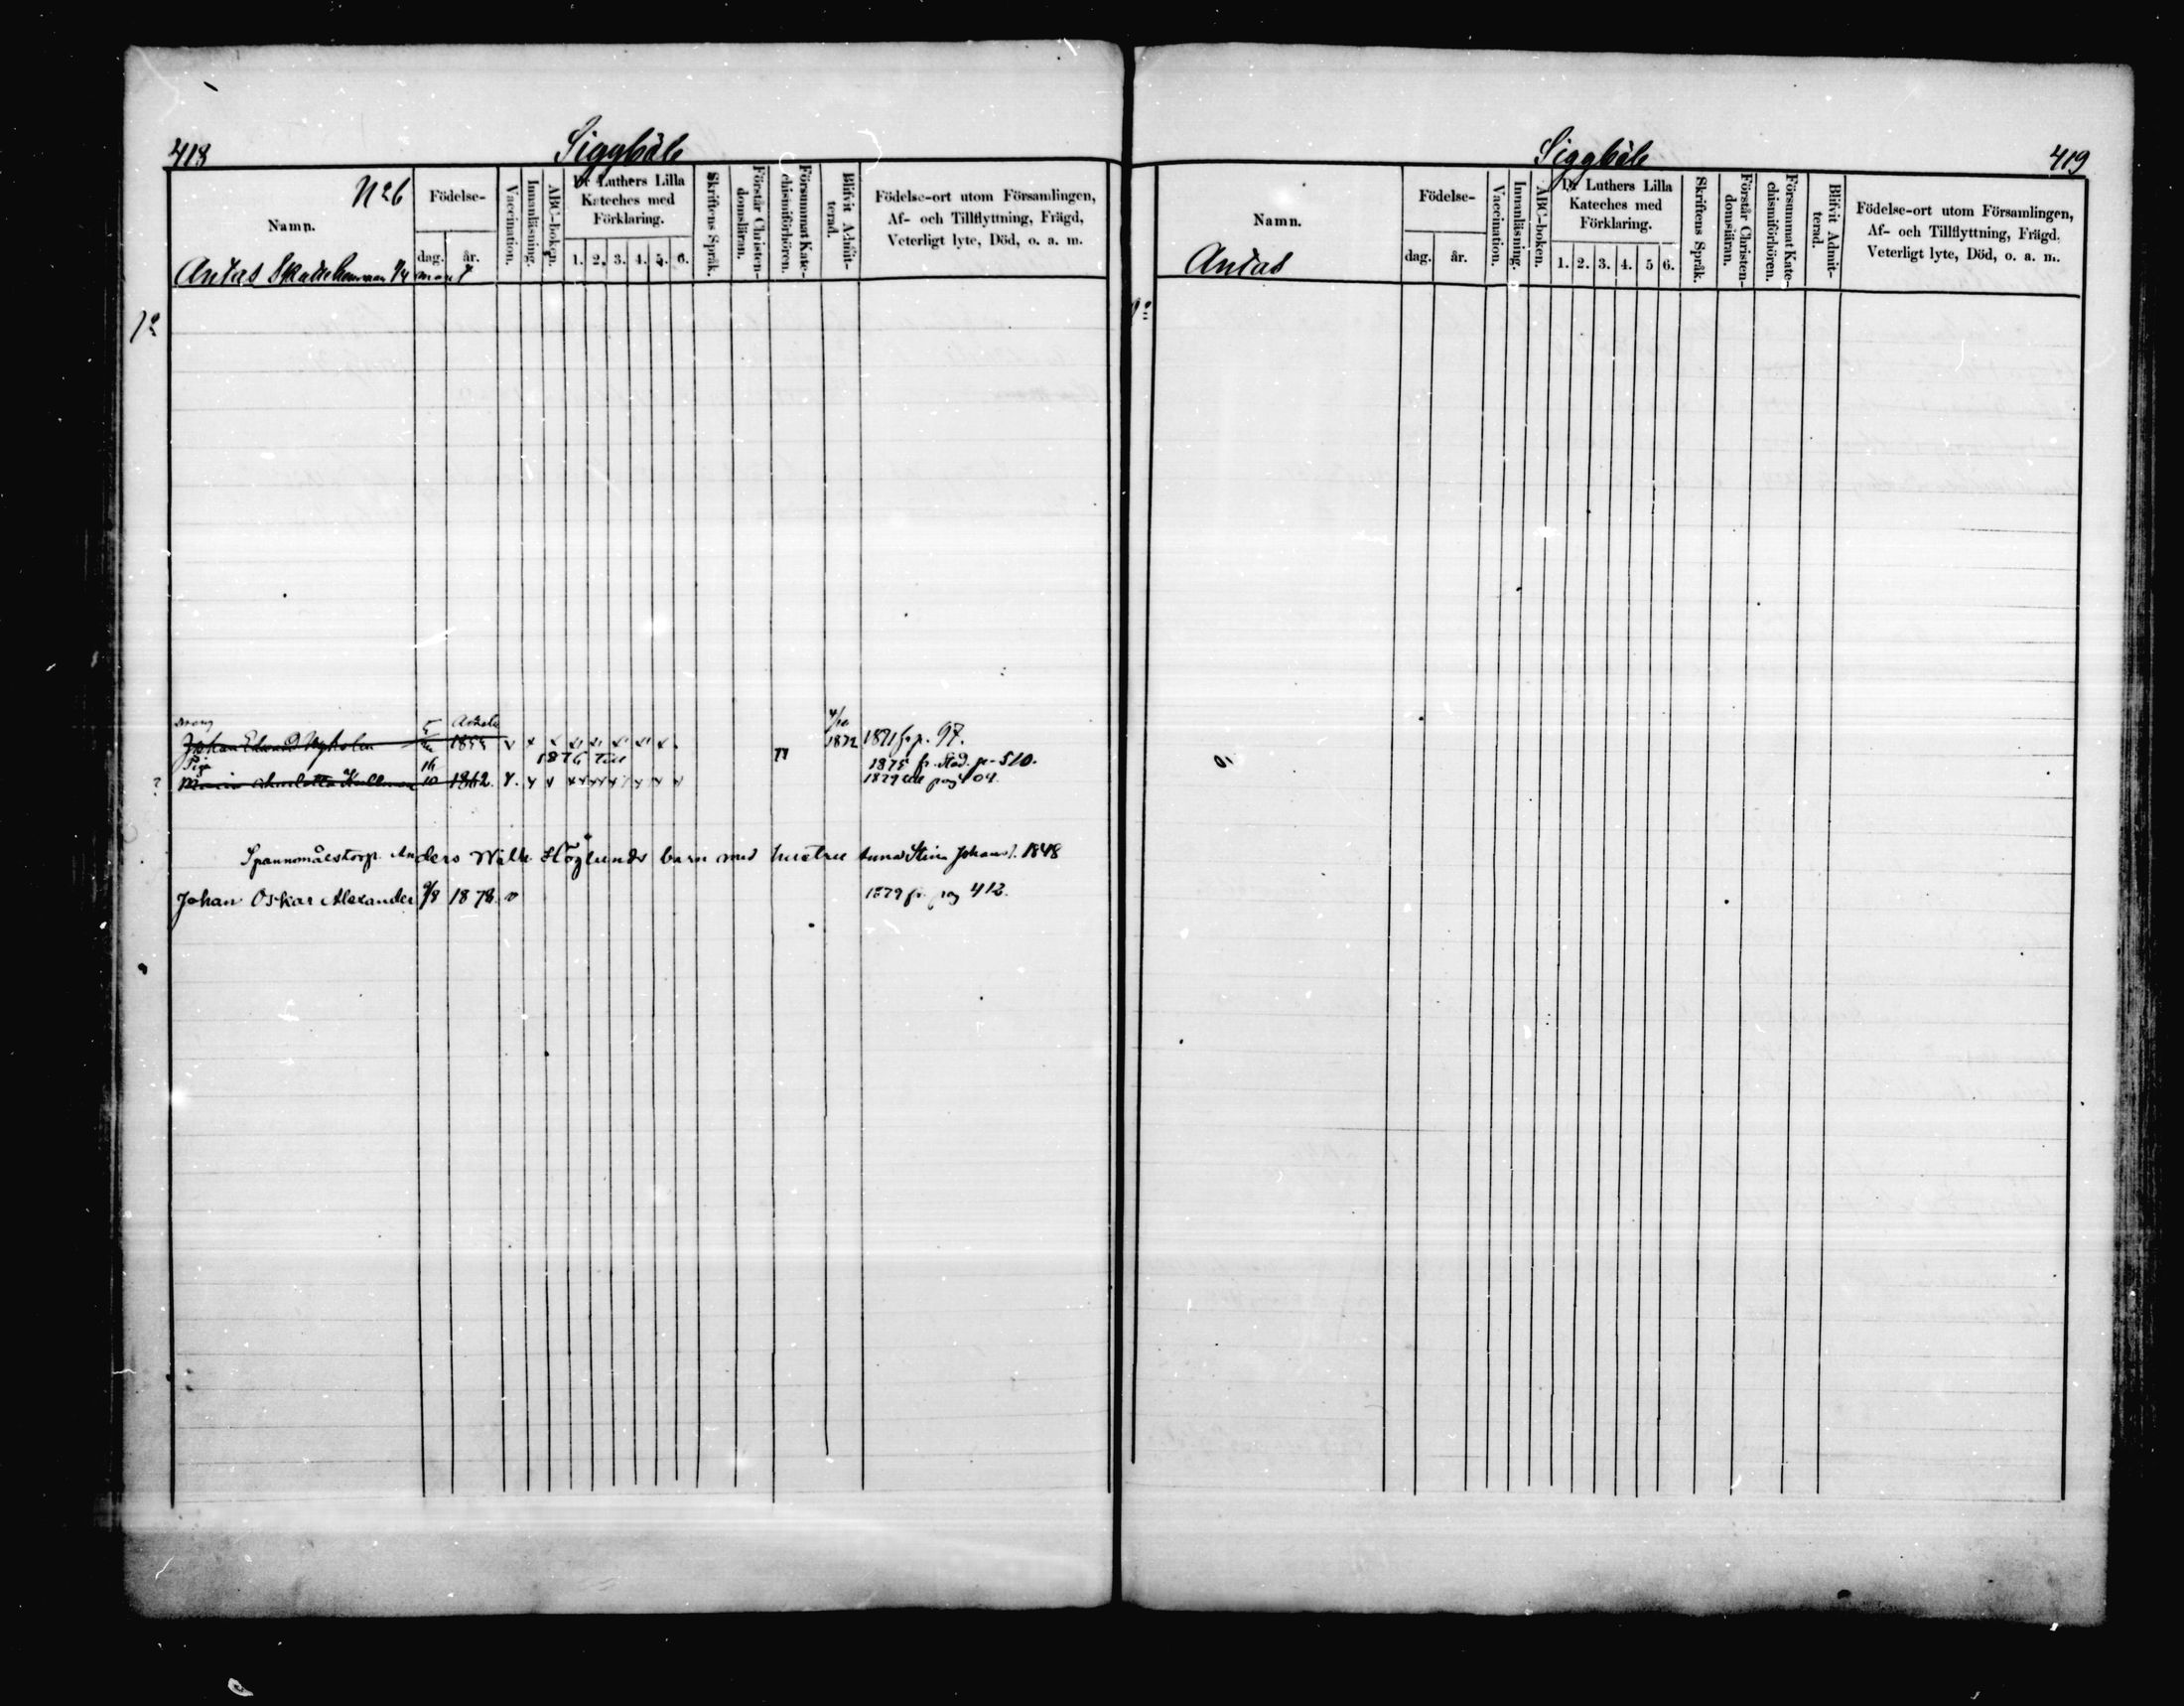 418
Siggböle
Namn.
N:o 6
Födelse-
dag.
år.
Vaccination.
Innanläsning.
ABC-boken.
Dr Luthers Lilla
Kateches med
Förklaring.
1. 2. 3. 4. 5. 6.
Skriftens Språk.
Förstår Christen-
domsläran.
Försummat Kate-
chismiförhören.
Blifvit Admit-
terad.
Födelse-ort utom Församlingen,
Af- och Tillflyttning, Frägd,
Veterligt lyte, Död, o. a. m.
Antas Skattehemman
1o
Dräng
Johan Edward Nyholm 1855 v 1872 1871 fr p. 97.
1876 Till
Piga
1875 fr. Städ. p. 510.
Maria Charlotta Kullman 16/10 1862. v. 1879 till pag 404.
Spannmålstorp. Anders Wilh. Höglunds barn med hustru Anna Stina Johansd. 1848
Johan Oskar Alexander 9/8 1878. v 1879 fr. pag 412.
Siggböle
419
Namn.
Födelse-
dag.
år.
Vaccination.
Innanläsning.
ABC-boken.
Dr Luthers Lilla
Kateches med
Förklaring.
1. 2. 3. 4. 5 6.
Skriftens Språk.
Förstår Christen-
domsläran.
Försummat Kate-
chismiförhören.
Blifvit Admit-
terad.
Födelse-ort utom Församlingen,
Af- och Tillflyttning, Frägd.
Veterligt lyte, Död, o. a. m.
Antas